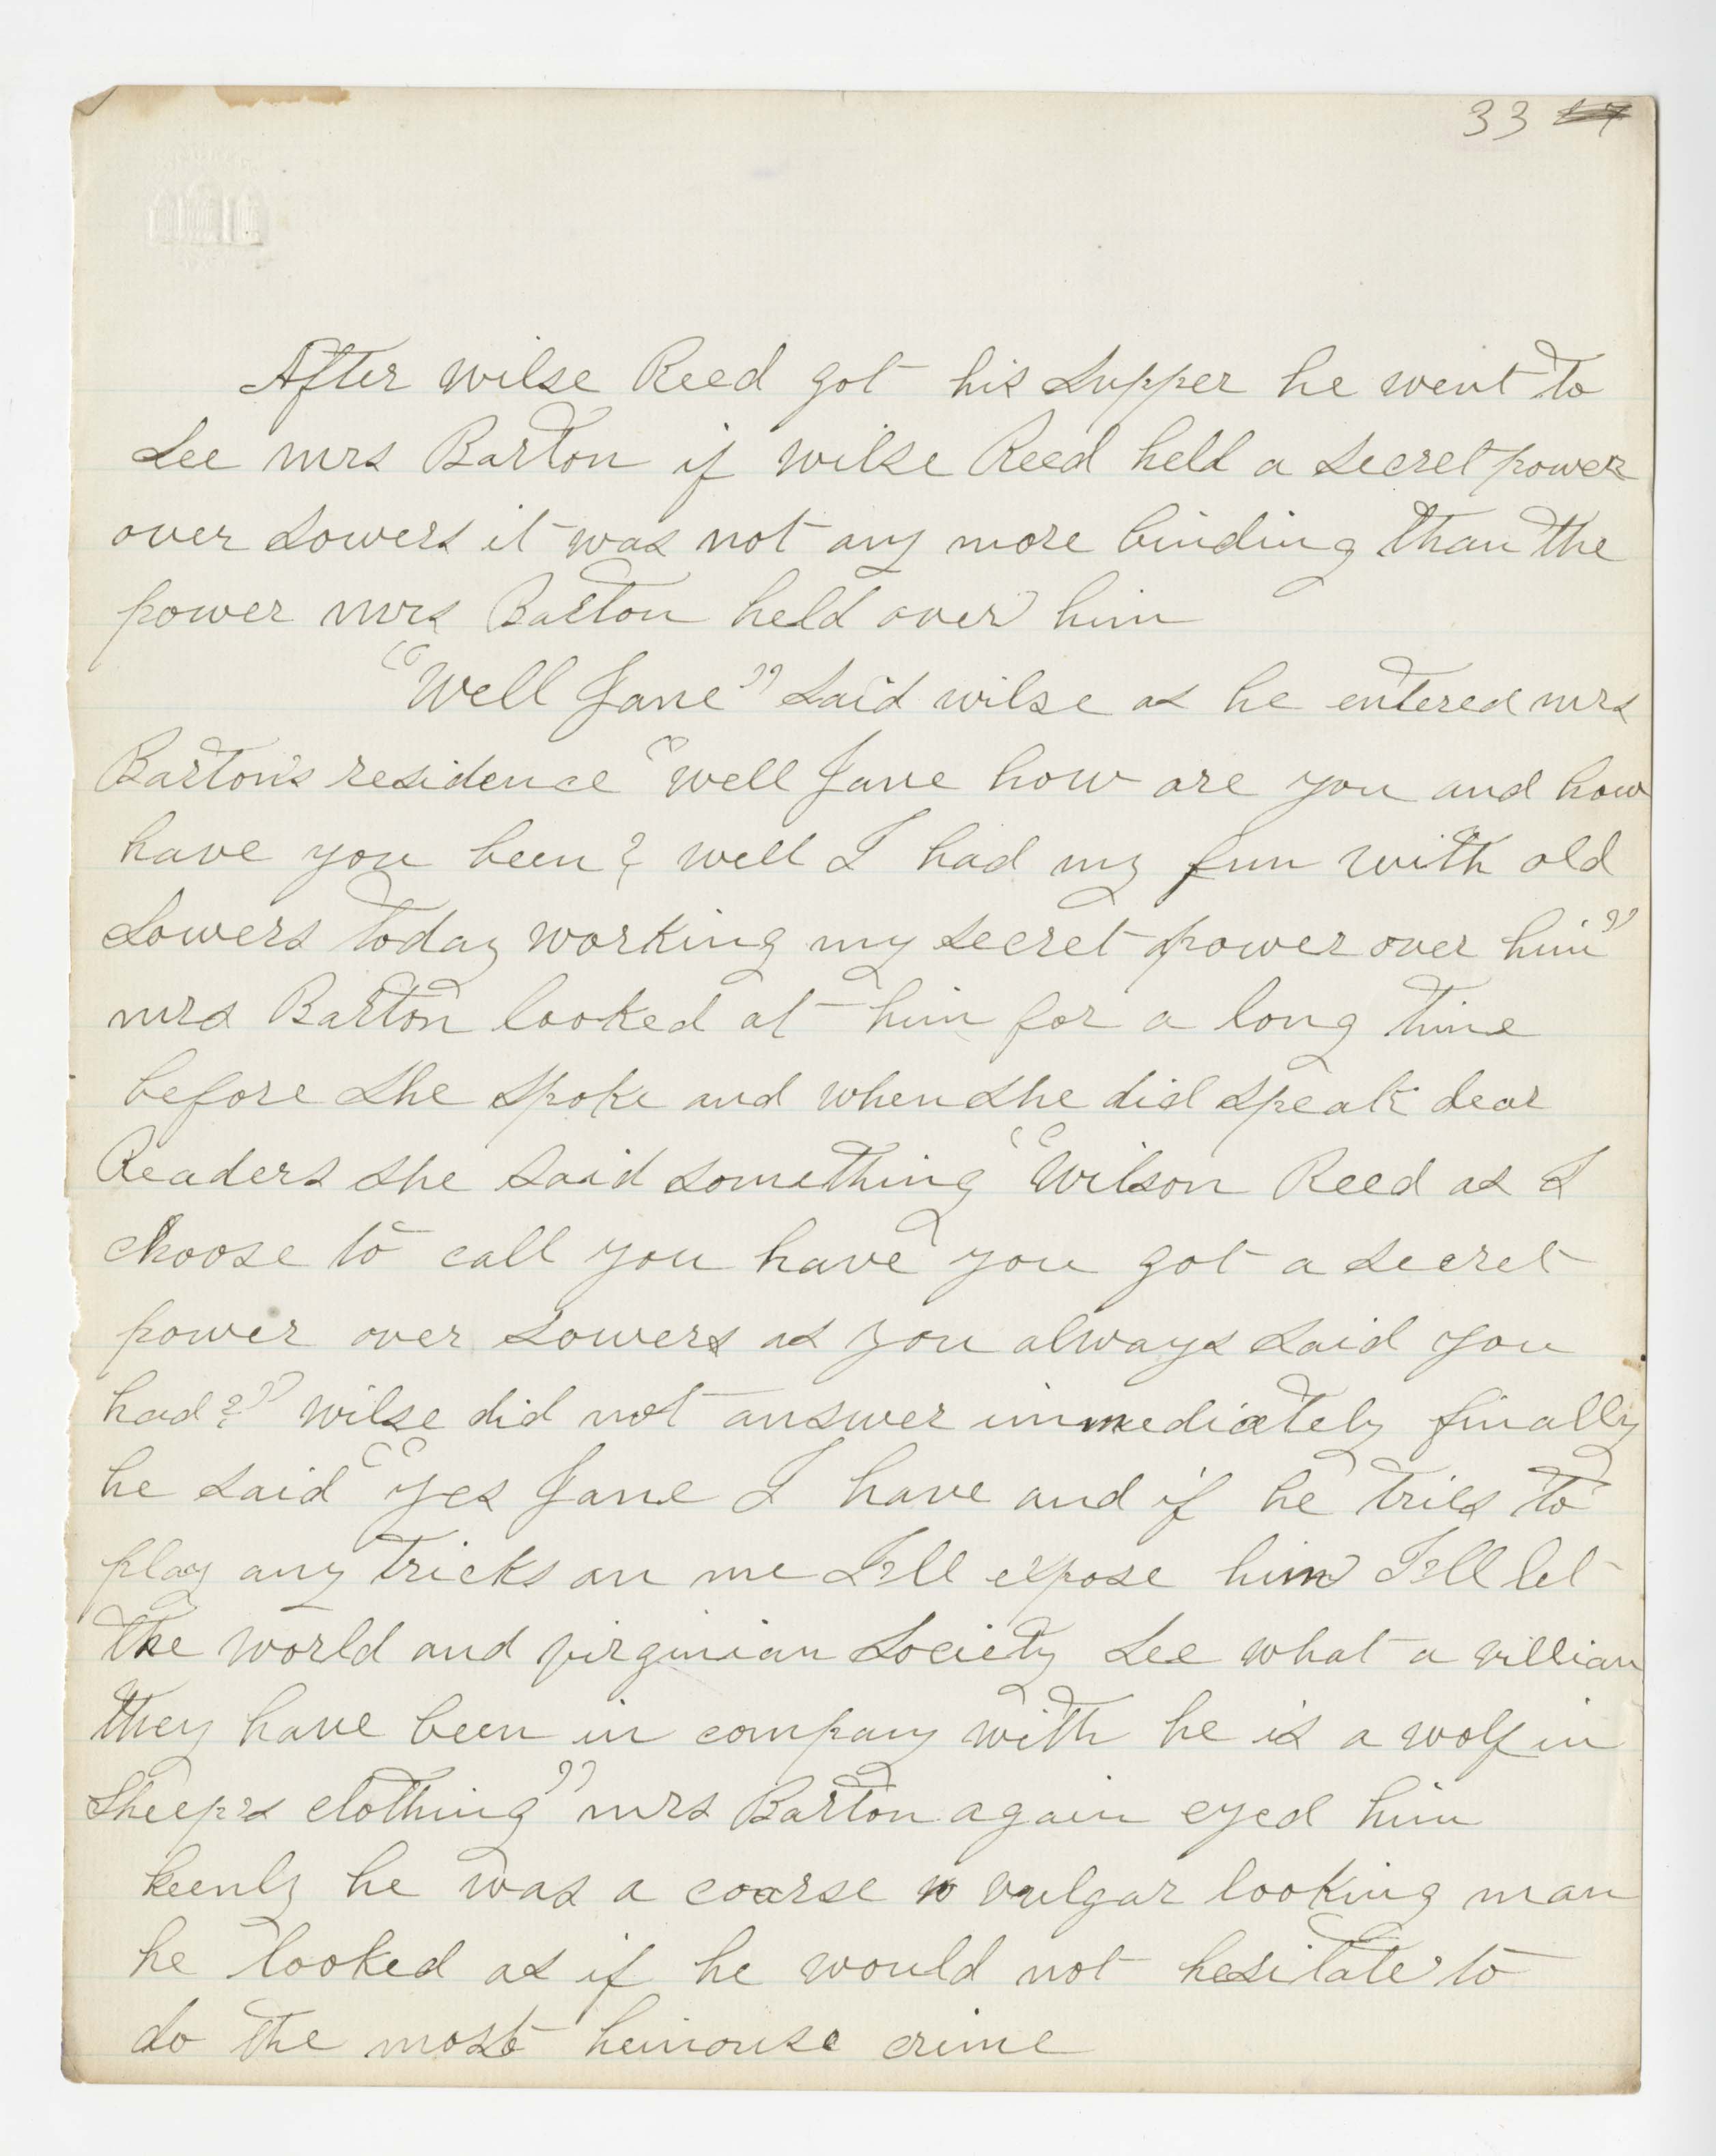 33 17
After wilse Reed got his supper he went to
see mrs Barton if wilse Reed held a secret power
over Sowers it was not any more binding than the
power mrs Barton held over him
"Well Jane" said wilse as he entered mrs
Barton's residence "well Jane how are you and how
have you been? well I had my fun with old
Sowers today working my secret power over him"
mrs Barton looked at him for a long time
before she spoke and when she did speak dear
Readers she said something "Wilson Reed as I
choose to call you have you got a secret
power over Sowers as you always said you
had?" wilse did not answer immediately finally
he said "yes Jane I have and if he tries to
play any tricks on me I'll expose him I'll let
the world and virginian society see what a villian
they have been in company with he is a wolf in
sheep's clothing" mrs Barton again eyed him
keenly he was a coarse vulgar looking man
he looked as if he would not hesitate to
do the most heinouse crime